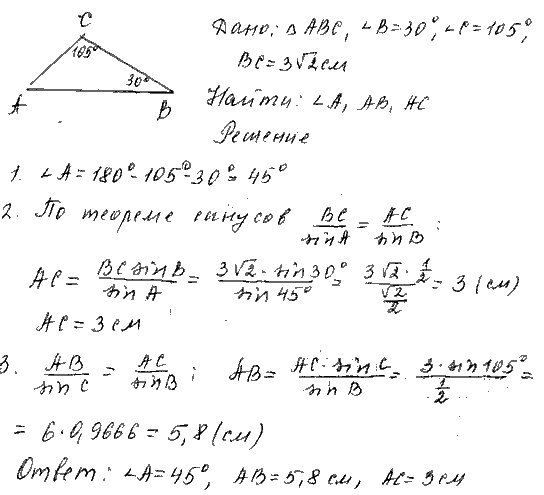 C
105°
30°
A
B
Дано: △ABC, ∠B=30°, ∠C=105°,
BC=3√2 см
Найти: ∠A, AB, AC
Решение
1. ∠A=180°-105°-30°=45°
2. По теореме синусов BC/sin A = AC/sin B :
AC = BC sin B/sin A = 3√2 · sin 30°/sin 45° = 3√2 · 1/2 / √2/2 = 3 (см)
AC = 3 см
3. AB/sin C = AC/sin B ; AB = AC · sin C/sin B = 3 · sin 105°/ 1/2 =
= 6 · 0,9666 = 5,8 (см)
Ответ: ∠A=45°, AB=5,8 см, AC=3 см